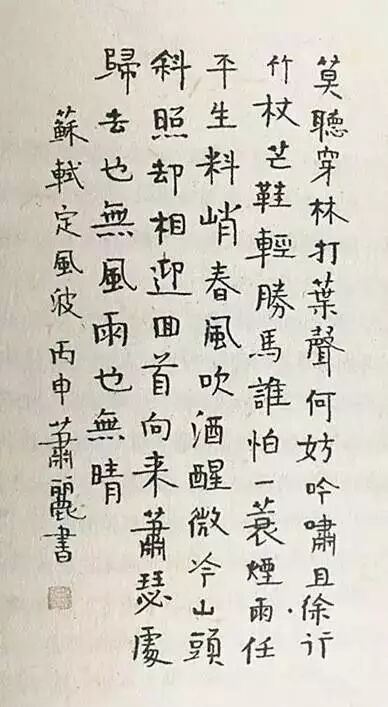 莫聽穿林打葉聲何妨吟嘯且徐行
竹杖芒鞋輕勝馬誰怕一蓑煙雨任
平生料峭春風吹酒醒微冷山頭
斜照却相迎回首向来蕭瑟處
歸去也無風雨也無晴
蘇軾定風波丙申蕭麗書